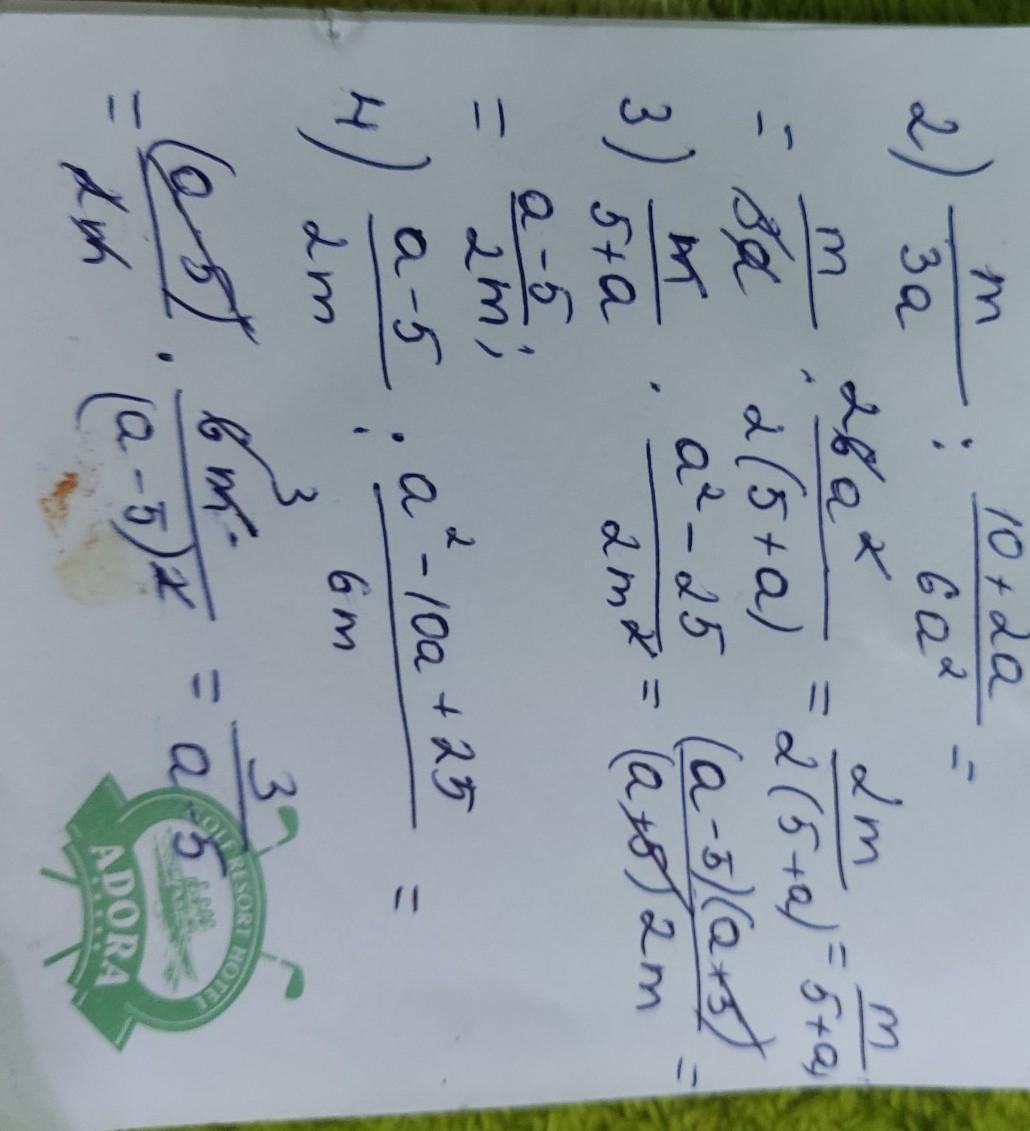 2) m/3a : (10+2a)/6a² =
= m/3a · 26a²/2(5+a) = 2m/2(5+a) = m/5+a,
3) m/5+a · (a²-25)/2m² = (a-5)(a+5)/(a+5)2m =
= a-5/2m;
4) a-5/2m : (a²-10a+25)/6m =
= (a-5)/2m · 6m3/(a-5)² = 3/a-5
GOLF RESORT HOTEL
ADORA